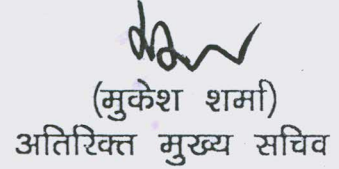 (मुकेश शर्मा)
अतिरिक्त मुख्य सचिव